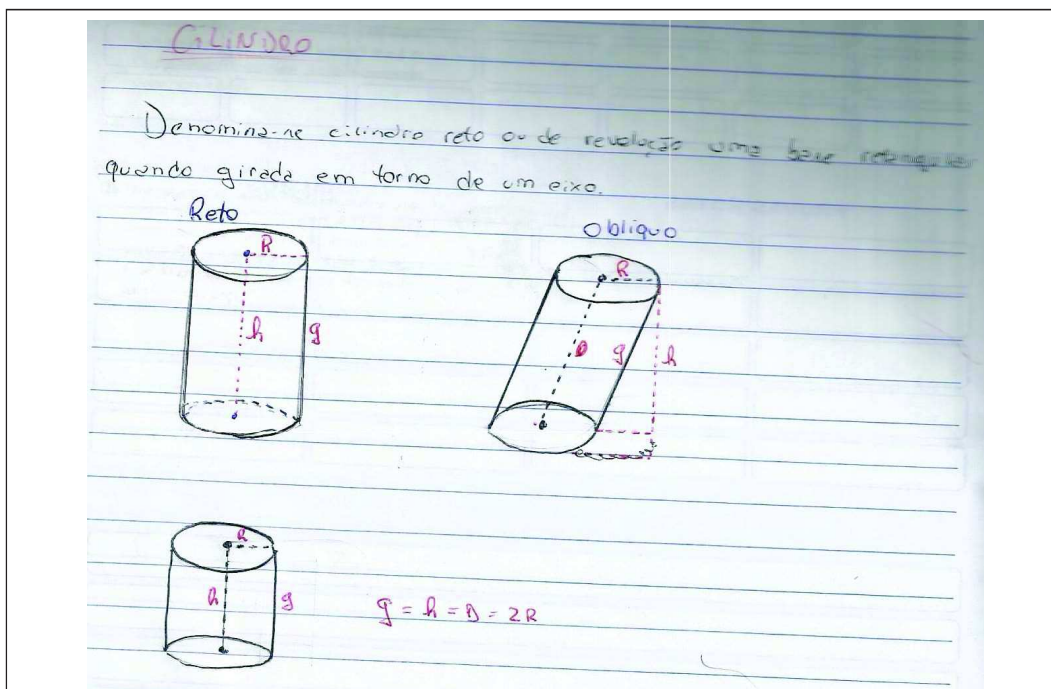 CILINDRO
Denomina-se cilindro reto ou de revolução uma base retangular
quando girada em torno de um eixo.
Reto
Oblíquo
R
R
h
g
g
h
R
h
g
g = h = D = 2R